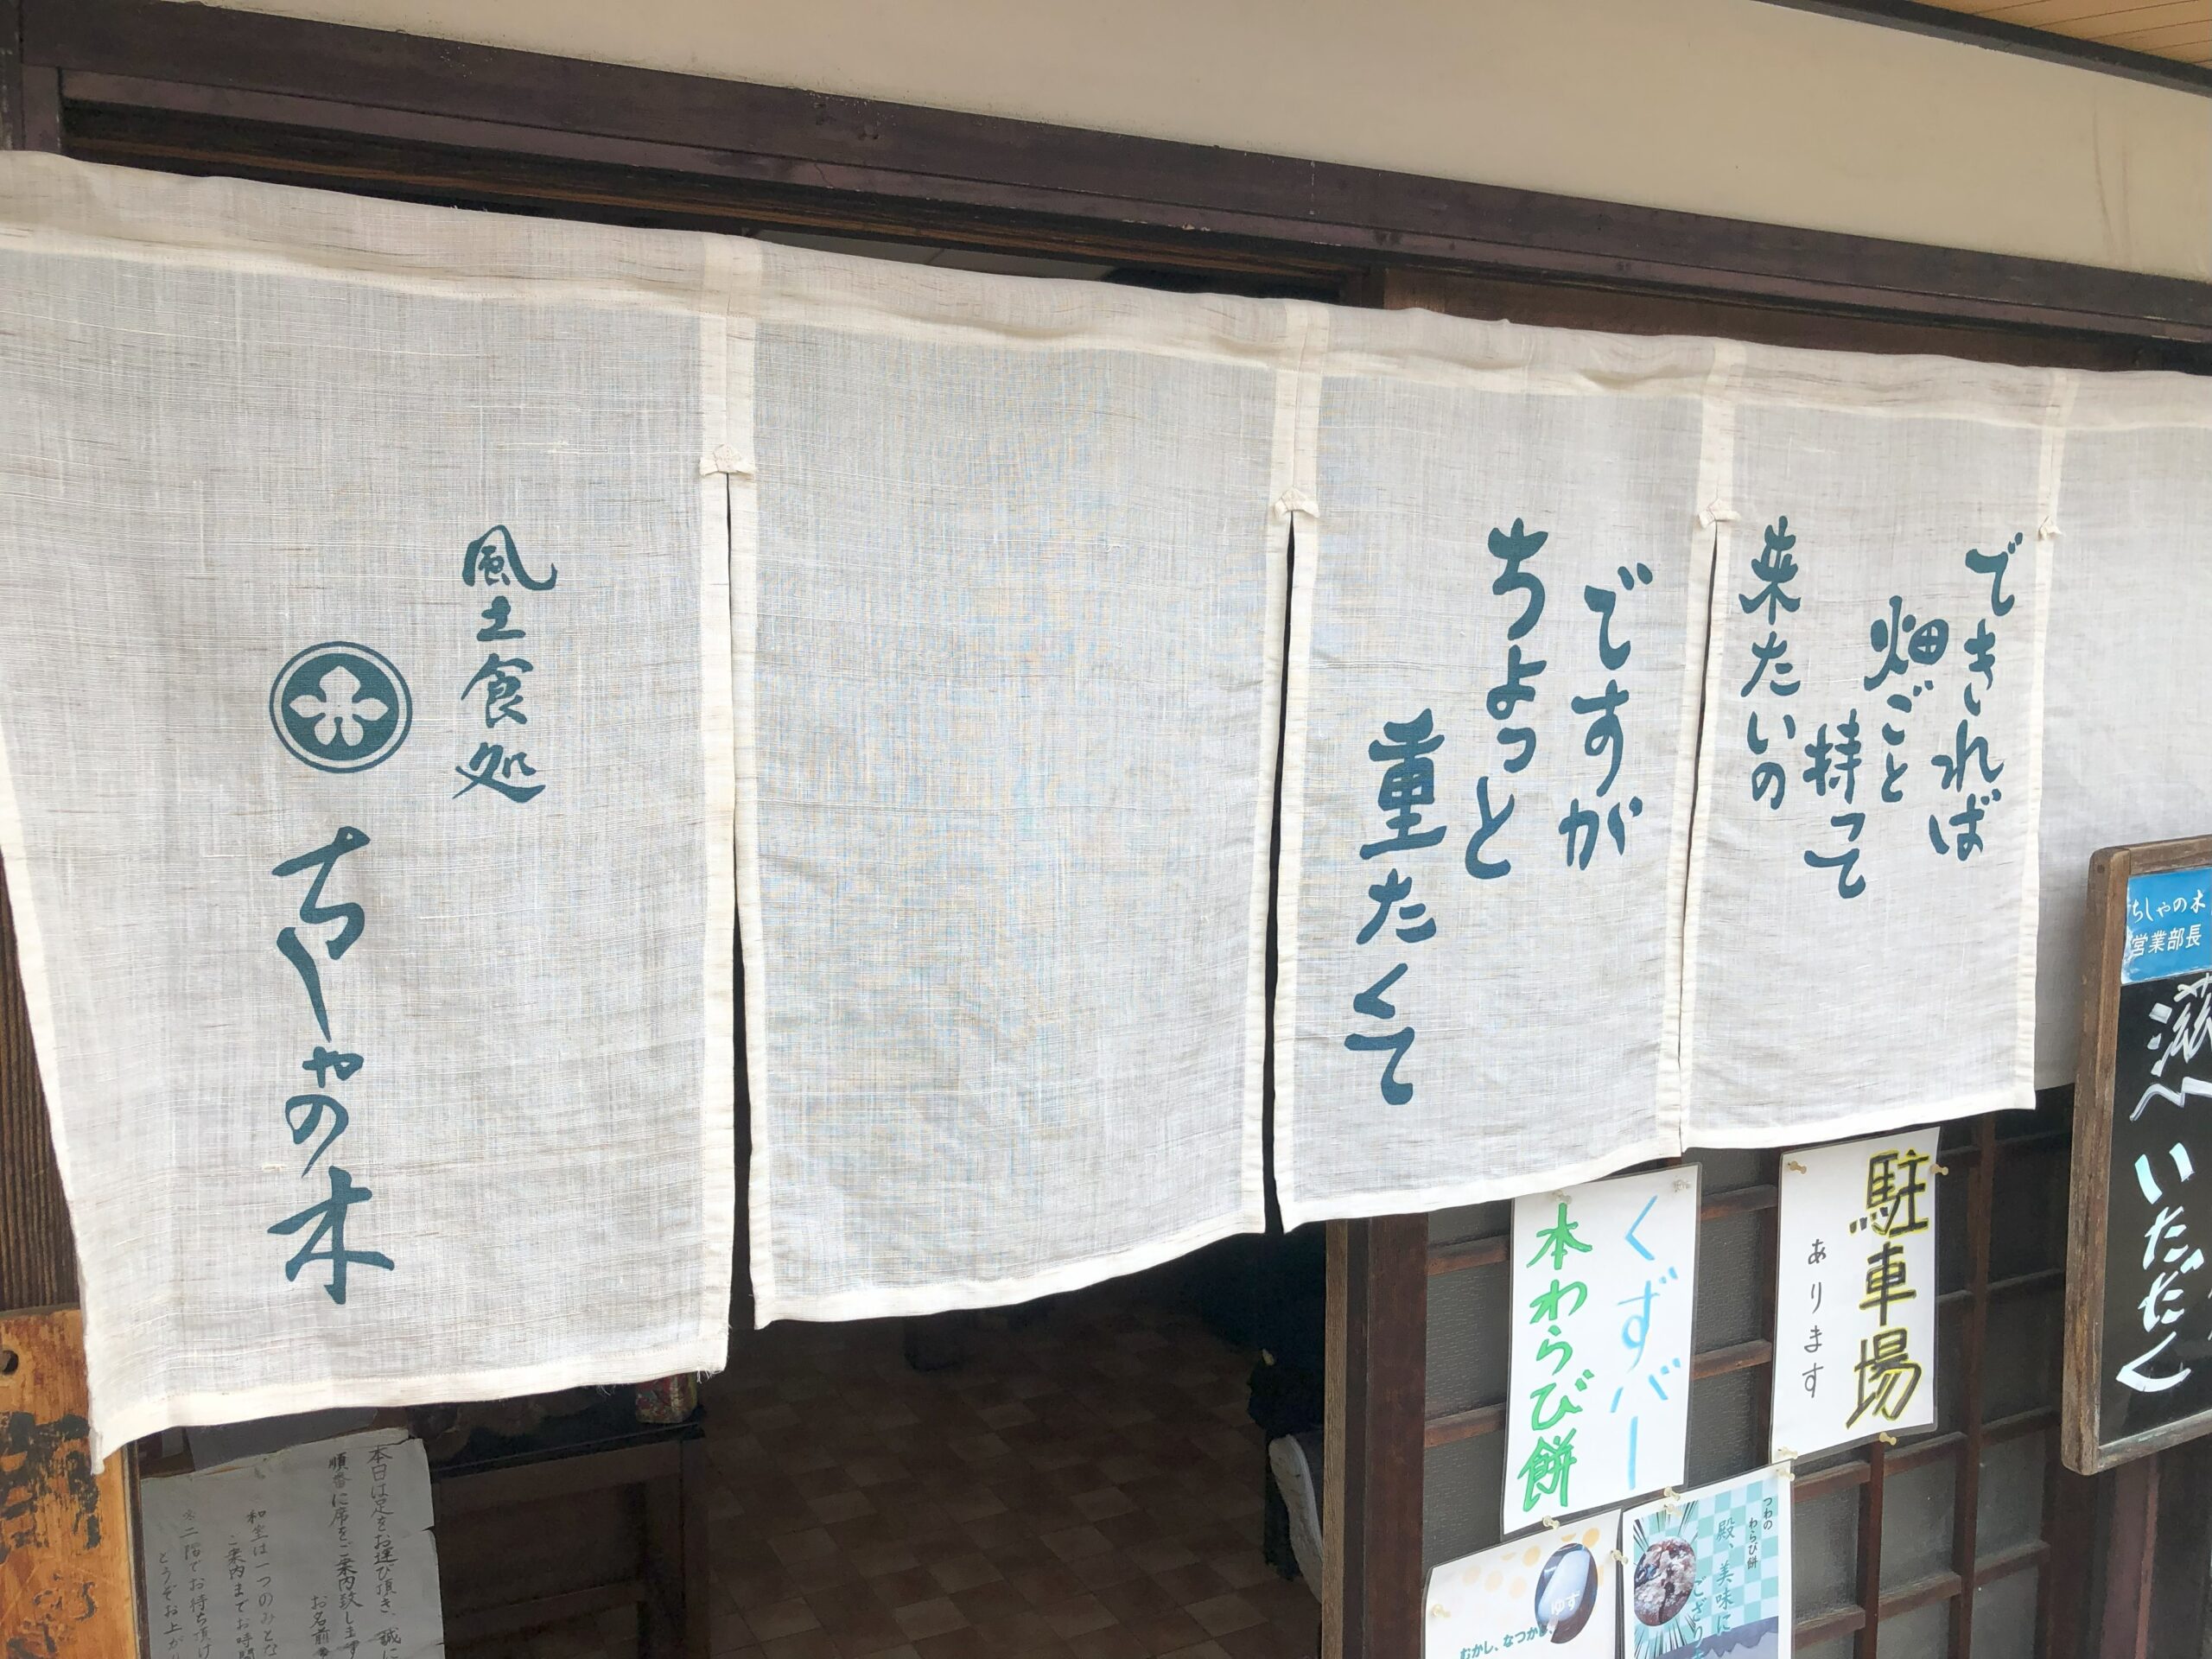 できれば
畑ごと
持って
来たいの
ですが
ちょっと
重たくて
風土食処
ちしゃの木
ちしゃの木
営業部長
いただく
駐車場
あります
くずバー
本わらび餅
つわの
わらび餅
殿、美味に
ござり
ゆず
むかし、なつかし、
本日は足をお運び頂き、誠に
順番に席をご案内致します
お名前
和室は一つのみとな
ご案内までお時間
二階でお待ち頂け
どうぞお上が